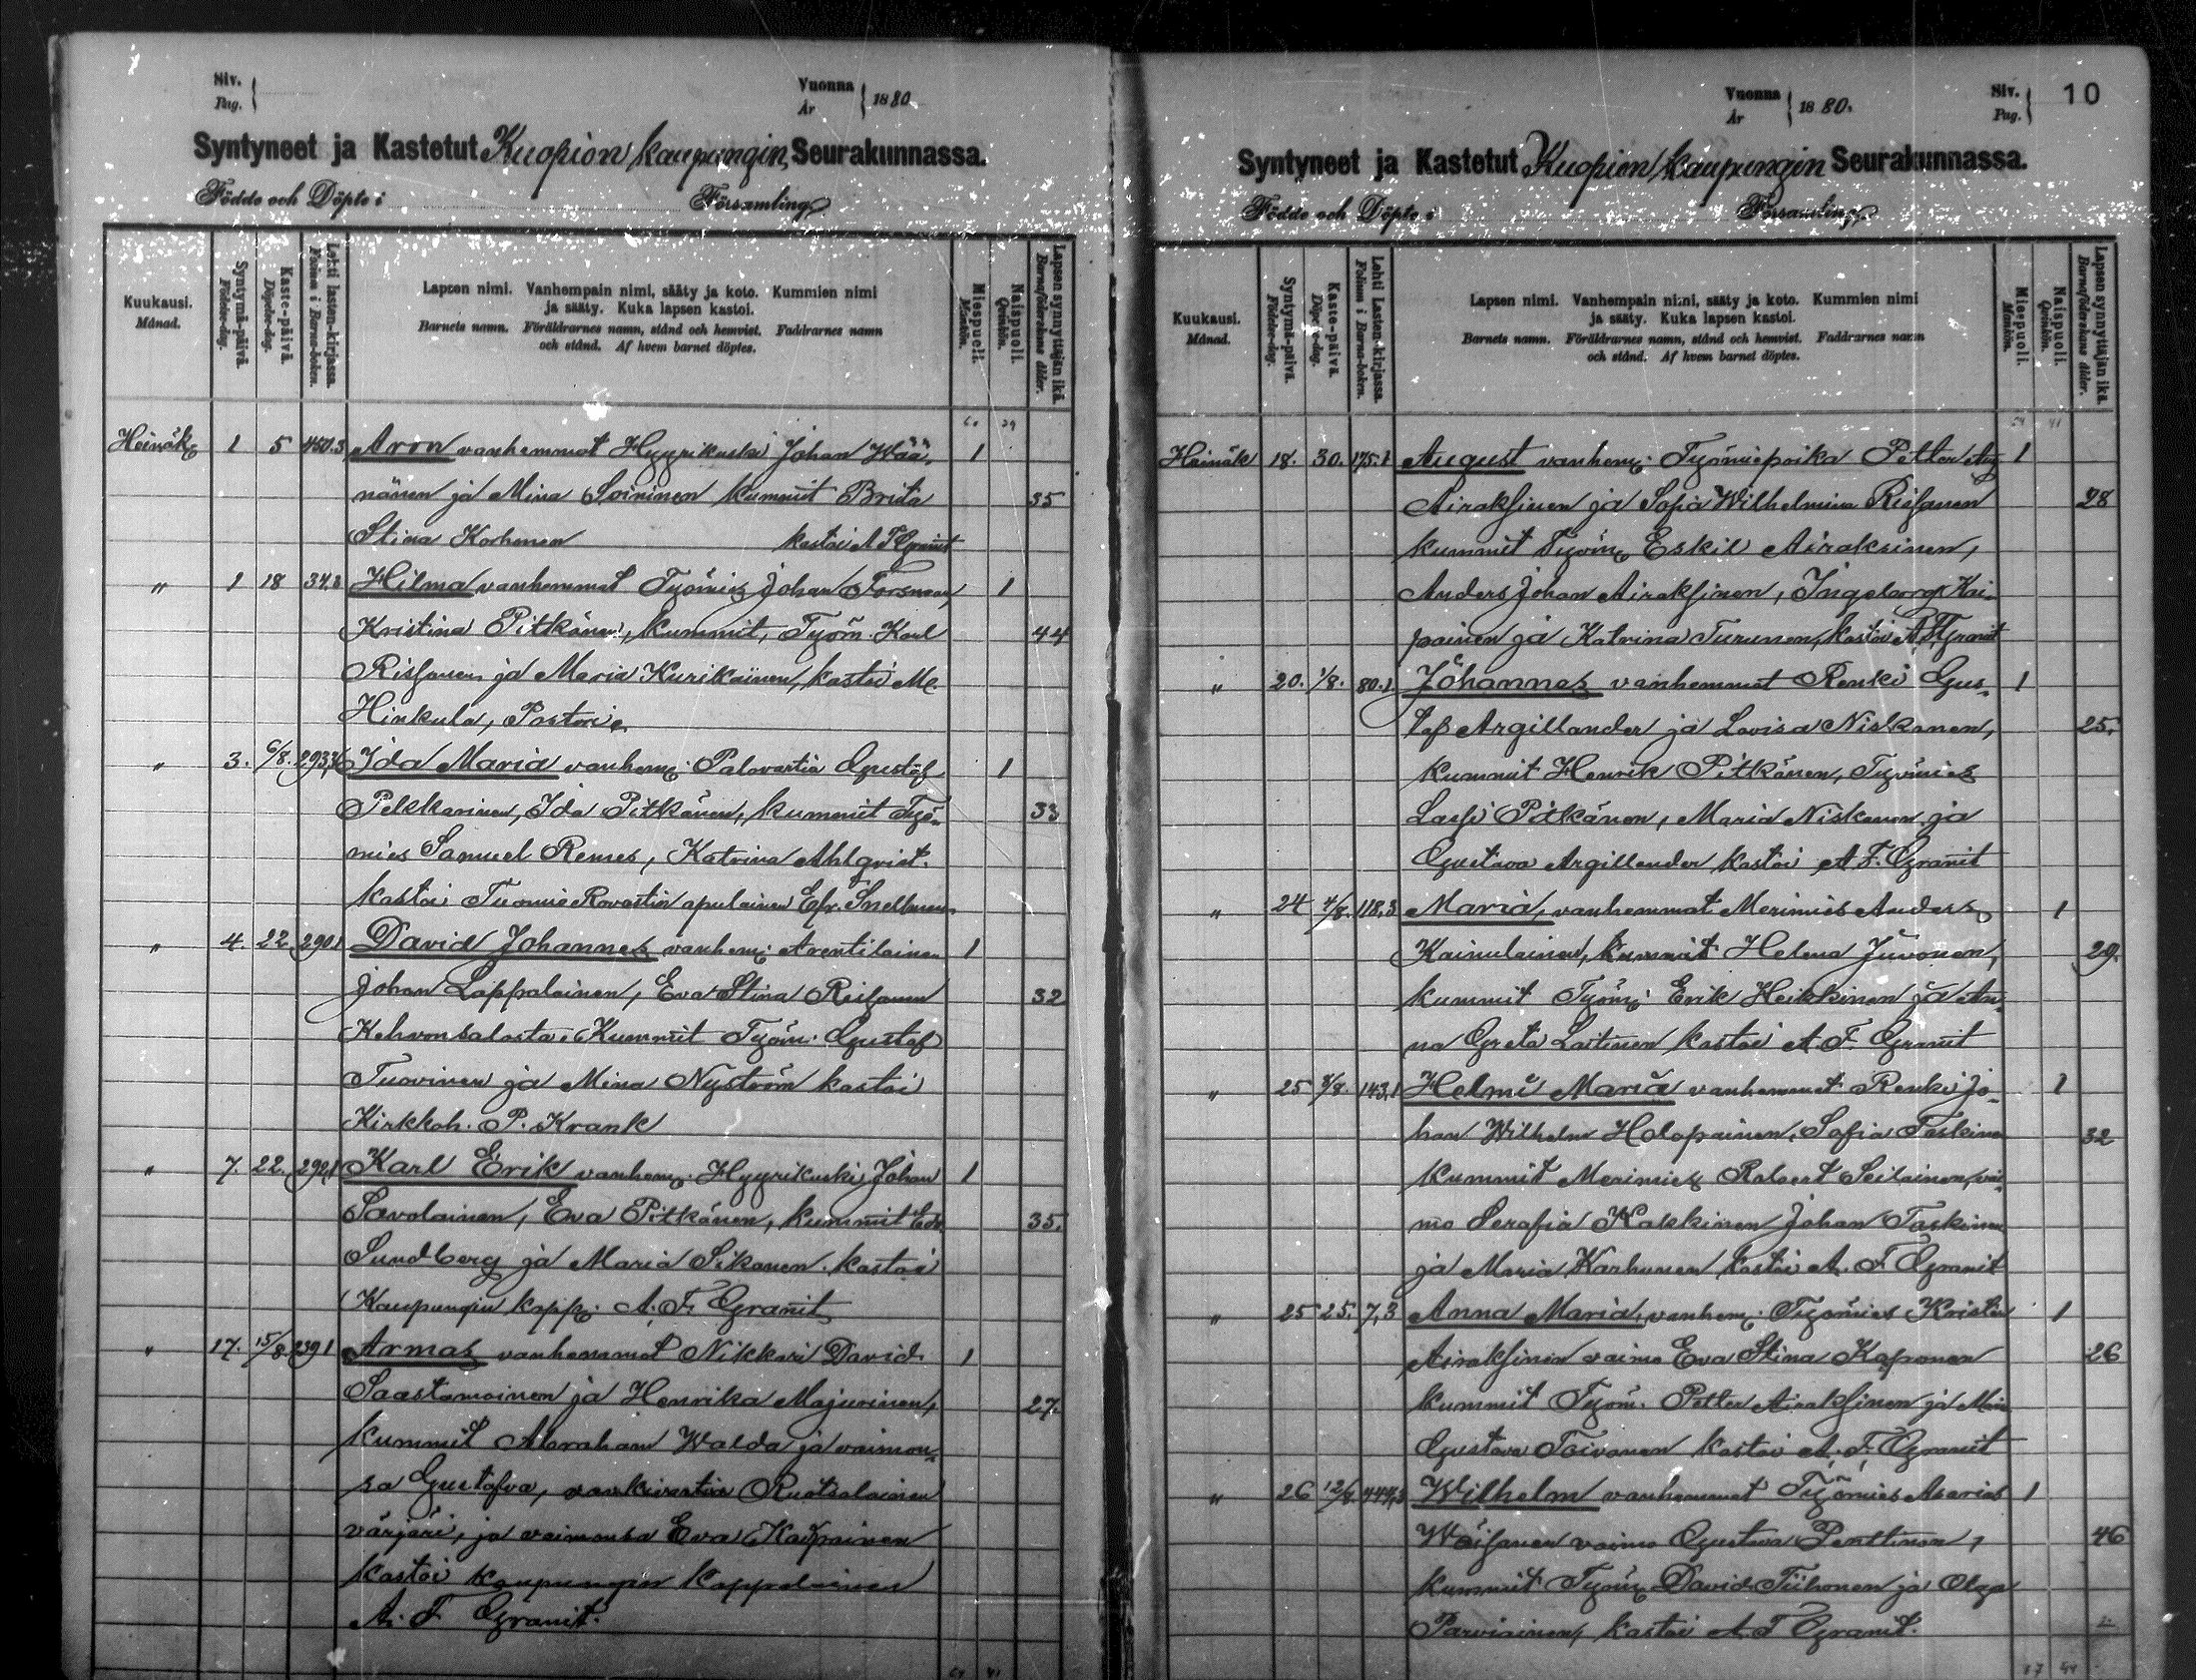 Siv.
Pag.
Vuonna
År
1880
Syntyneet ja Kastetut Kuopion kaupungin Seurakunnassa.
Födde och Döpte i Församling
Kuukausi.
Månad.
Syntymä-päivä.
Födelse-dag.
Kaste-päivä.
Döpelse-dag.
Lehti lasten-kirjassa.
Folium i Barna-boken.
Lapsen nimi. Vanhempain nimi, sääty ja koto. Kummien nimi
ja sääty. Kuka lapsen kastoi.
Barnets namn. Föräldrarnes namn, stånd och hemvist. Faddrarnes namn
och stånd. Af hvem barnet döptes.
Miespuoli.
Mankön.
Naispuoli.
Qvinkön.
Lapsen synnyttäjän ikä.
Barnaföderskans ålder.
Heinäk 1 5 450.3 Aron vanhemmat Hyyrikuski Johan Wää- 1
nänen ja Mina Soininen kummit Brita 35
Stina Korhonen kastoi A F Granit
" 1 18 34.2 Hilma vanhemmat Työmies Johan Forsman, 1
Kristina Pitkänen, kummit, Työm. Karl 44
Rissanen ja Maria Kurikainen, kastoi
Hinkula, Pastori
" 3. 6/8. 293,3 Ida Maria vanhem. Palovartia Gustaf 1
Pekkarinen, Ida Pitkänen, kummit Työ- 33
mies Samuel Remes, Katrina Ahlqvist.
kastoi Tuomio Rovastin apulainen Snellman
" 4. 22. 290.1 David Johannes vanhem. Arentilainen 1
Johan Lappalainen, Eva Stina Rissanen 32
Kehvonsalosta. Kummit Työm. Gustaf
Tuovinen ja Mina Nyström kastoi
Kirkkoh. P. Krank
" 7. 22. 292,1 Karl Erik vanhem. Hyyrikuski Johan 1
Savolainen, Eva Pitkänen, kummit Edv. 35.
Sundberg ja Maria Sikanen. kastoi
Kaupungin kapp. A. F. Granit
" 17. 15/8. 239 1 Armas vanhemmat Nikkari David 1
Saastamoinen ja Henrika Majurinen, 27.
kummit Abraham Walda ja vaimon-
sa Gustafva, vankivartia Ruotsalainen
värjäri, ja vaimonsa Eva Kaipainen
kastoi kaupungin kappalainen
A. F Granit.
Vuonna
År
1880.
Siv.
Pag.
10
Syntyneet ja Kastetut Kuopion kaupungin Seurakunnassa.
Födde och Döpte i Församling
Kuukausi.
Månad.
Syntymä-päivä.
Födelse-dag.
Kaste-päivä.
Döpelse-dag.
Lehti Lasten-kirjassa.
Folium i Barna-boken.
Lapsen nimi. Vanhempain nimi, sääty ja koto. Kummien nimi
ja sääty. Kuka lapsen kastoi.
Barnets namn. Föräldrarnes namn, stånd och hemvist. Faddrarnes namn
och stånd. Af hvem barnet döptes.
Miespuoli.
Mankön.
Naispuoli.
Qvinkön.
Lapsen synnyttäjän ikä.
Barnaföderskans ålder.
Heinäk 18. 30. 175.1 August vanhem. Työmiespoika Petter Aug 1
Airaksinen ja Sofia Wilhelmina Rissanen 28
kummit Työm. Eskil Airaksinen,
Anders Johan Airaksinen, Ingeborg Kai-
painen ja Katarina Turunen, kastoi A. F. Granit
" 20. 1/8. 80.1. Johannes vanhemmat Renki Gus- 1
taf Argillander ja Lovisa Niskanen, 25.
kummit Henrik Pitkänen, Työmies
Lassi Pitkänen, Maria Niskanen ja
Gustava Argillander kastoi A F. Granit
" 24 4/8. 118,3 Maria, vanhemmat Merimies Anders 1
Kainulainen, kummit Helena Juvonen, 29.
kummit Työm. Erik Heikkinen ja An-
na Greta Laitinen kastoi A. F. Granit
" 25 8/8. 143,1 Helmi Maria vanhemmat Renki Jo- 1
han Wilhelm Holopainen, Sofia Taskinen 32
kummit Merimies Robert Seilainen, vai-
mo Serafia Kakkinen Johan Taskinen
ja Maria Karhunen kastoi A. F. Granit
" 25 25. 7,3 Anna Maria, vanhem. Työmies Kristian 1
Airaksinen vaimo Eva Stina Kaponen 26
kummit Työm. Petter Airaksinen ja Maria
Gustava Toivanen kastoi A. F. Granit
" 26 444,3 Wilhelm vanhemmat Työmies Asarias 1
Wäisänen vaimo Gustava Penttinen, 46
kummit Työm. David Tiihonen ja Olga
Parviainen, kastoi A. F Granit.